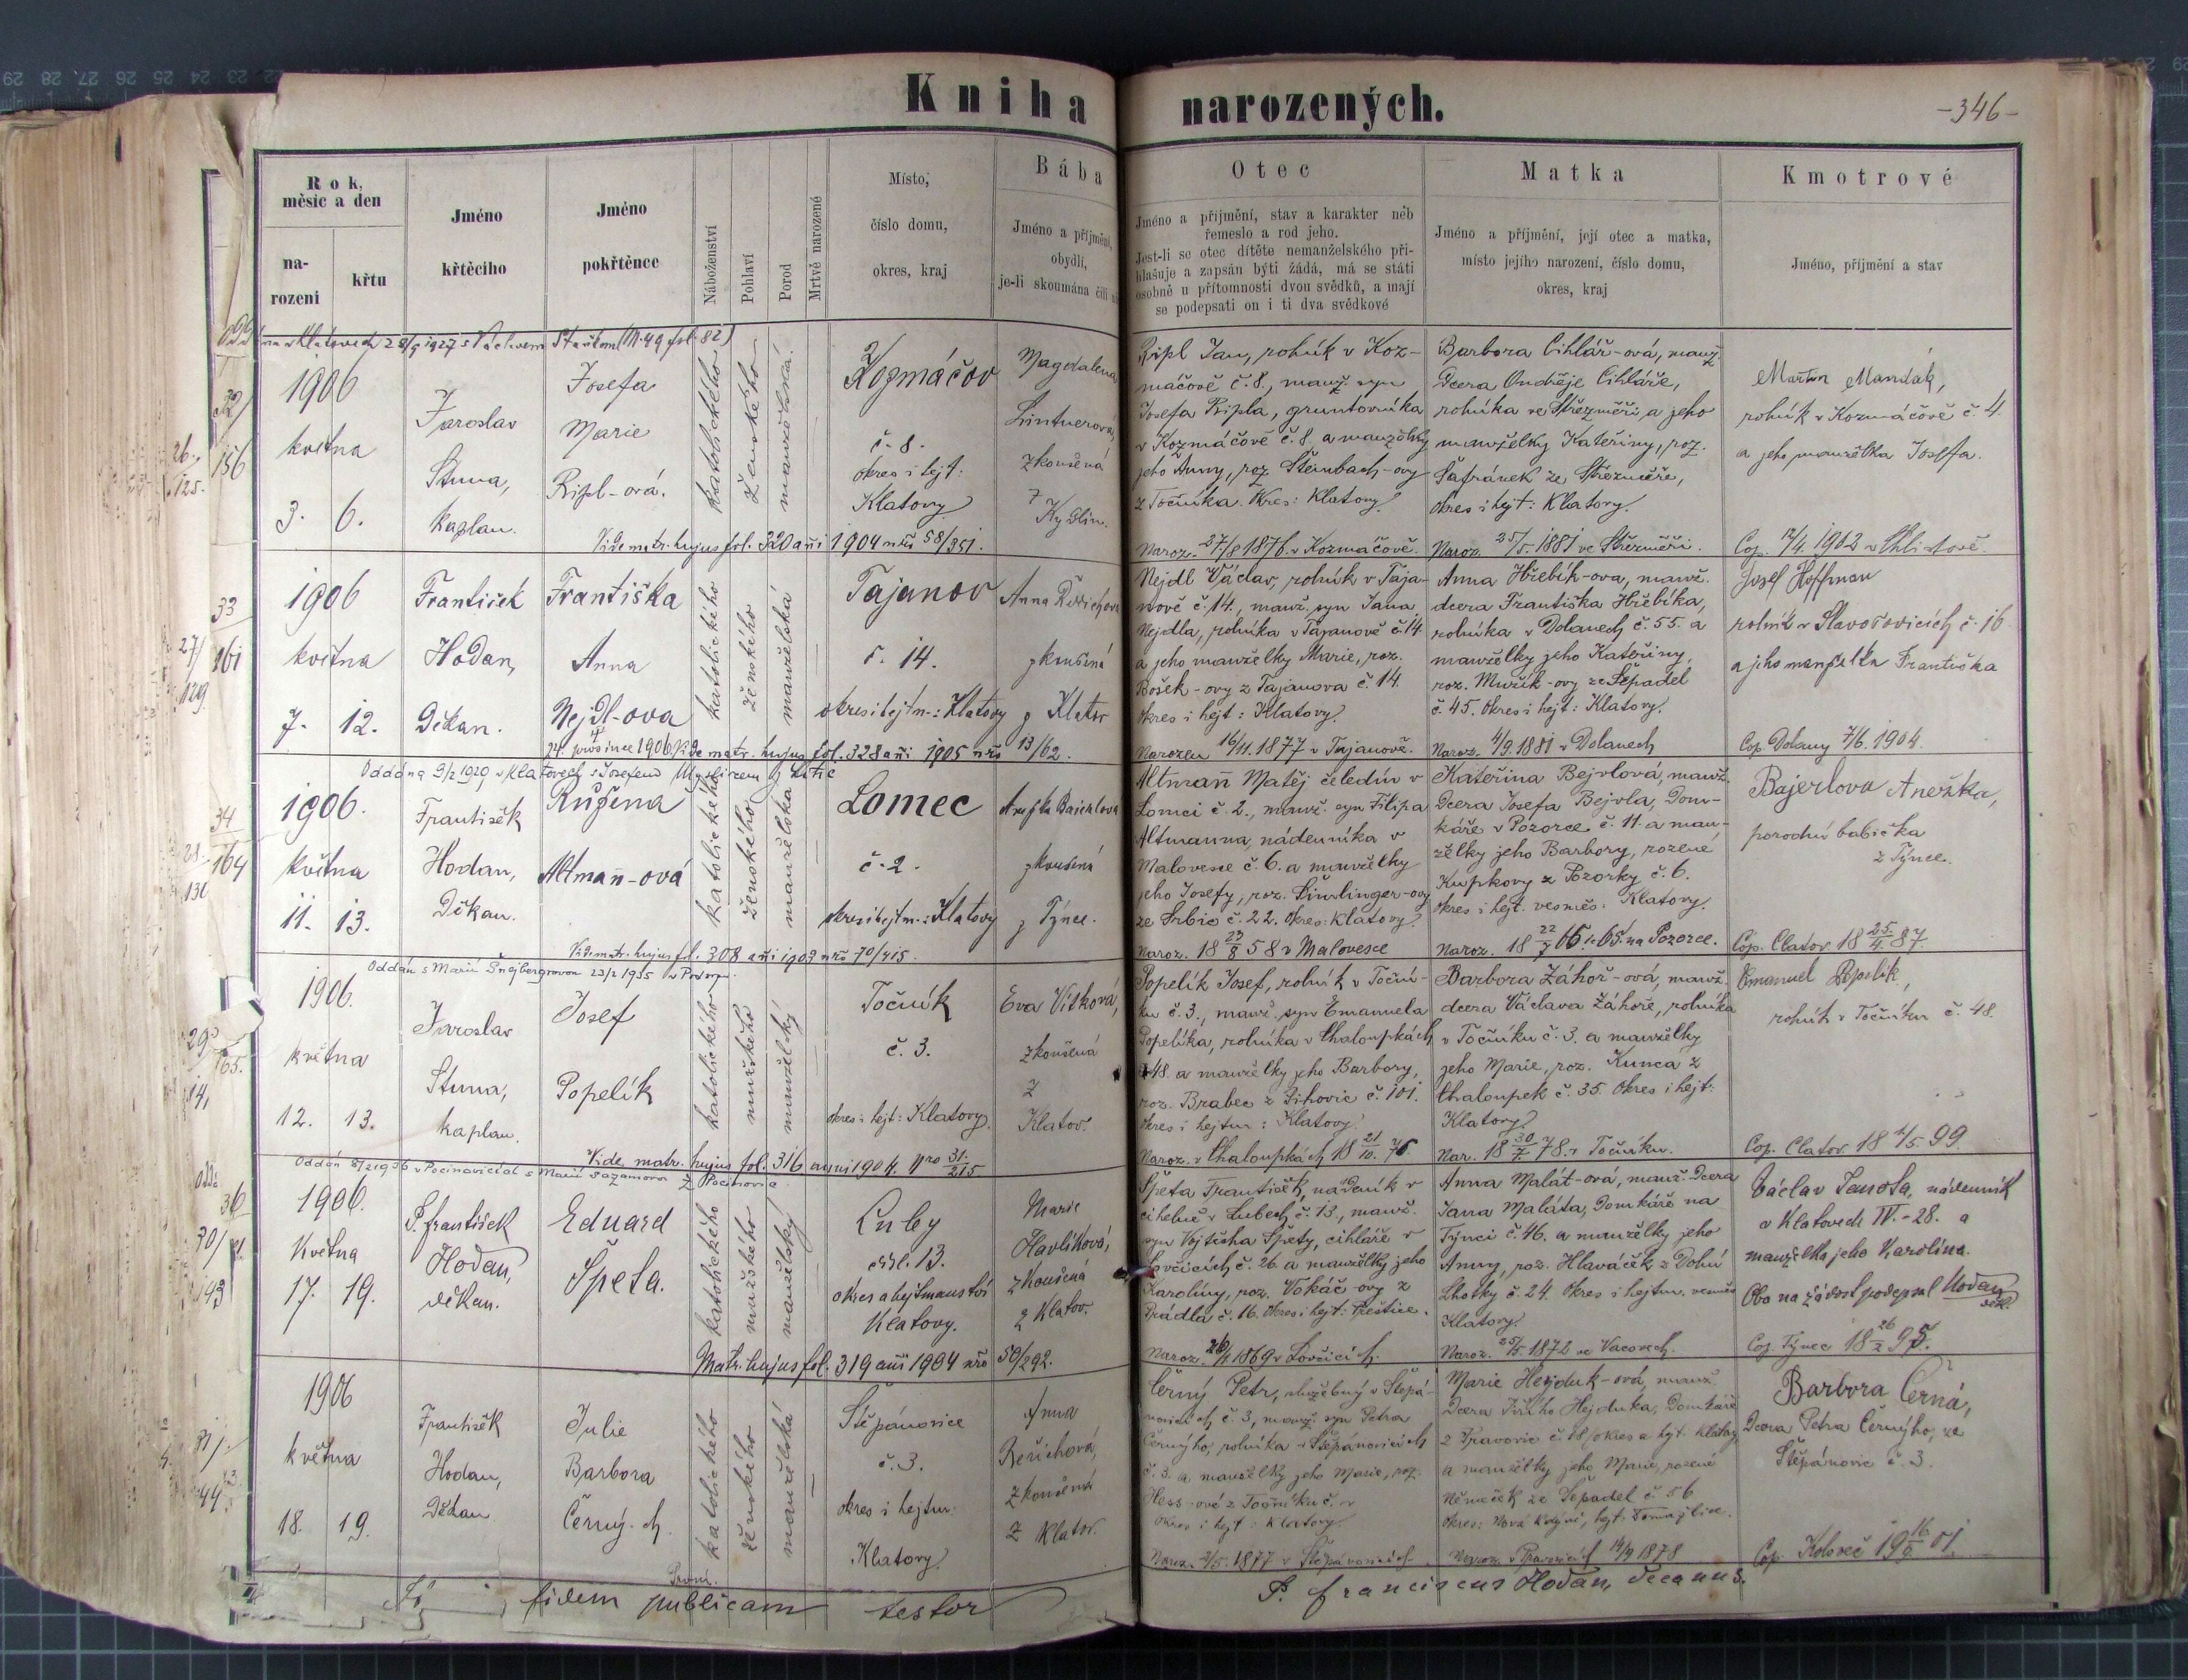 Kniha narozených.
-346-
Rok, měsíc a den
narození
křtu
Jméno křtěcího
Jméno pokřtěnce
Náboženství
Pohlaví
Porod
Mrtvě narozené
Místo,
číslo domu,
okres, kraj
Bába
Jméno a příjmení,
obydlí,
je-li skoumána čili
Otec
Jméno a přijmění, stav a karakter neb
řemeslo a rod jeho.
Jest-li se otec dítěte nemanželského při-
hlašuje a zapsán býti žádá, má se státi
osobně u přítomnosti dvou svědků, a mají
se podepsati on i ti dva svědkové
Matka
Jméno a příjmení, její otec a matka,
místo jejího narození, číslo domu,
okres, kraj
Kmotrové
Jméno, příjmení a stav
32/
156
1906
května
3. 6.
Jaroslav
Stuna,
kaplan.
Josefa
Marie
Ripl-ová.
katolického
ženského
manželská.
Kozmáčov
č. 8.
okres i hejt:
Klatovy
Magdalena
zkoušená
Ripl Jan, rolník v Koz-
máčově č. 8., manž. syn
Josefa Ripla, gruntovníka
v Kozmáčově č. 8 a manželky
jeho Anny, roz. Šteinbach-ovy
z Točníka. Okres: Klatovy.
Naroz. 27/8 1876 v Kozmáčově.
Barbora Cihlář-ová, manž.
Dcera Ondřeje Cihláře,
rolníka ve Střezměři a jeho
manželky Kateřiny, roz.
Šafránek ze Střezměře,
okres i hejt: Klatovy.
Naroz. 25/5. 1881 ve Střezměři.
Martin Mandák,
rolník v Kozmáčově č. 4.
a jeho manželka Josefa.
Cop. 12/4. 1902 v Chlistově.
Vide matr. hujus fol. 320 ani 1904 nro 58/351.
33
161
1906
května
7. 12.
František
Hodan,
Děkan.
Františka
Anna
Nejdl-ova
katolického
ženského
manželská
Tajanov
č. 14.
okres i hejtm.: Klatovy
Anna Řeřichová
zkoušená
z Klatov
Nejdl Václav, rolník v Taja-
nově č. 14., manž. syn Jana
Nejdla, rolníka v Tajanově č. 14
a jeho manželky Marie, roz.
Bošek-ovy z Tajanova č. 14.
okres i hejt: Klatovy.
Narozen 16/11. 1877 v Tajanově.
Anna Hřebík-ova, manž.
dcera Františka Hřebíka,
rolníka v Dolanech č. 55. a
manželky jeho Kateřiny,
roz. Mužík-ovy ze Šepadel
č. 45. okres i hejt: Klatovy.
Naroz. 4/9. 1881 v Dolanech
Josef Hoffman
rolník v Slavošovicích č. 16
a jeho manželka Františka
Cop. Dolany 7/6. 1904.
prosince 1906. Vide matr. hujus fol. 328 ani 1905 nro 13/62.
Oddána 9/2 1929 v Klatovech s Josefem
34
164
1906.
května
11. 13.
František
Hodan,
Děkan.
Růžena
Altmañ-ová
katolického
ženského
manželská
Lomec
č. 2.
okres i hejtm.: Klatovy
Anežka Baierlova
zkoušená
z Týnce.
Altmañ Matěj čeledín v
Lomci č. 2., manž. syn Filipa
Altmanna, nádenníka v
Malovesce č. 6. a manželky
jeho Josefy, roz. Šindlinger-ovy
ze Srbic č. 22. okres: Klatovy.
Naroz. 18 23/8 58 v Malovesce
Kateřina Bejvlová, manž.
Dcera Josefa Bejvla, Dom-
káře v Pozorce č. 11. a man-
želky jeho Barbory, rozené
Kupkovy z Pozorky č. 6.
okres i hejt. vesměs: Klatovy.
Bajerlova Anežka,
porodní babička
z Týnce.
Cop. Clatov. 18 25/4. 87.
Vide matr. hujus fol. 308 ani 1903 nro 70/415.
1906.
května
12. 13.
Jaroslav
Stuna,
kaplan.
Josef
Popelík
katolického
mužského
manželský
Točník
č. 3.
okres i hejt: Klatovy.
Eva Vítková,
zkoušená
z
Klatov.
Popelík Josef, rolník v Toční-
ku č. 3., manž. syn Emanuela
Popelíka, rolníka v Chaloupkách
48. a manželky jeho Barbory,
roz. Brabec z Jihovic č. 101.
okres i hejtm: Klatovy.
Naroz. v Chaloupkách 18 21/10. 76
Barbora Záhoř-ová, manž.
dcera Václava Záhoře, rolníka
v Točníku č. 3. a manželky
jeho Marie, roz. Kunca z
Chaloupek č. 35. okres i hejt:
Klatovy.
Nar. 18 30/7. 78. v Točníku.
Emanuel Popelík,
rolník v Točníku č. 48.
Cop. Clatov. 18 4/5 99
Vide matr. hujus fol. 316 anni 1904. Nro 31./215
36
1906.
Května
17. 19.
P. František
Hodan,
děkan.
Eduard
Špeta.
katolického
mužského
manželský
Luby
čísl. 13.
okres a hejtmanství
Klatovy.
Marie
Havlíková,
zkoušená
z Klatov.
Špeta František, nádeník v
cihelně v Lubech č. 13., manž.
syn Vojtěcha Špety, cihláře v
Lovčicích č. 26. a manželky jeho
Karolíny, roz. Vokáč-ovy z
Prádla č. 16. okres i hejt: Přeštice.
Anna Malát-ová, manž. Dcera
Jana Maláta, Domkáře na
Týnci č. 46. a manželky jeho
Anny, roz. Hlaváček z Dolní
Lhotky č. 24. okres i hejtm. vesměs
Klatovy.
Naroz. 25/5. 1872 ve Vacovech.
Václav Janota, nádenník
v Klatovech IV.-28. a
manželka jeho Karolína.
Oba na žádost podepsal Hodan
děk.
Cop. Týnec 18 26/2 95.
Matr. hujus fol. 319 ani 1904 nro 50/292.
1906
května
18. 19.
František
Hodan,
Děkan
Julie
Barbora
Černý-ch
katolického
ženského
manželská
Štěpánovice
č. 3.
okres i hejtm:
Klatovy.
Anna
Řeřichová,
zkoušená
z Klatov.
Černý Petr, služebný v Štěpá-
novicích č. 3, manž. syn Petra
Černýho, rolníka v Štěpánovicích
č. 3. a manželky jeho Marie, roz.
Hess-ové z Točníku č.
okres i hejt: Klatovy.
Naroz. 2/5. 1877 v Štěpánovicích
Marie Hejduk-ová, manž.
Dcera Jiřího Hejduka, Domkáře
a manželky jeho Marie, rozené
Němeček ze Šepadel č. 56
okres: Nová Kdyně, hejt. Domažlice.
Barbora Černá,
Dcera Petra Černýho, ze
Štěpánovic č. 3.
Cop. Koloveč 19 16/9 01.
fidem publicam testor
P. Franciscus Hodan, decanus.